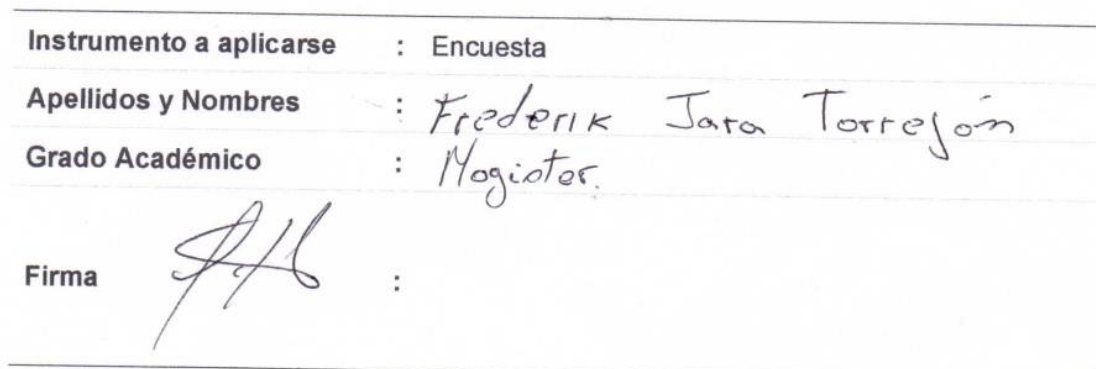 Instrumento a aplicarse : Encuesta
Apellidos y Nombres : Frederik Jara Torrejón
Grado Académico : Magister.
Firma :